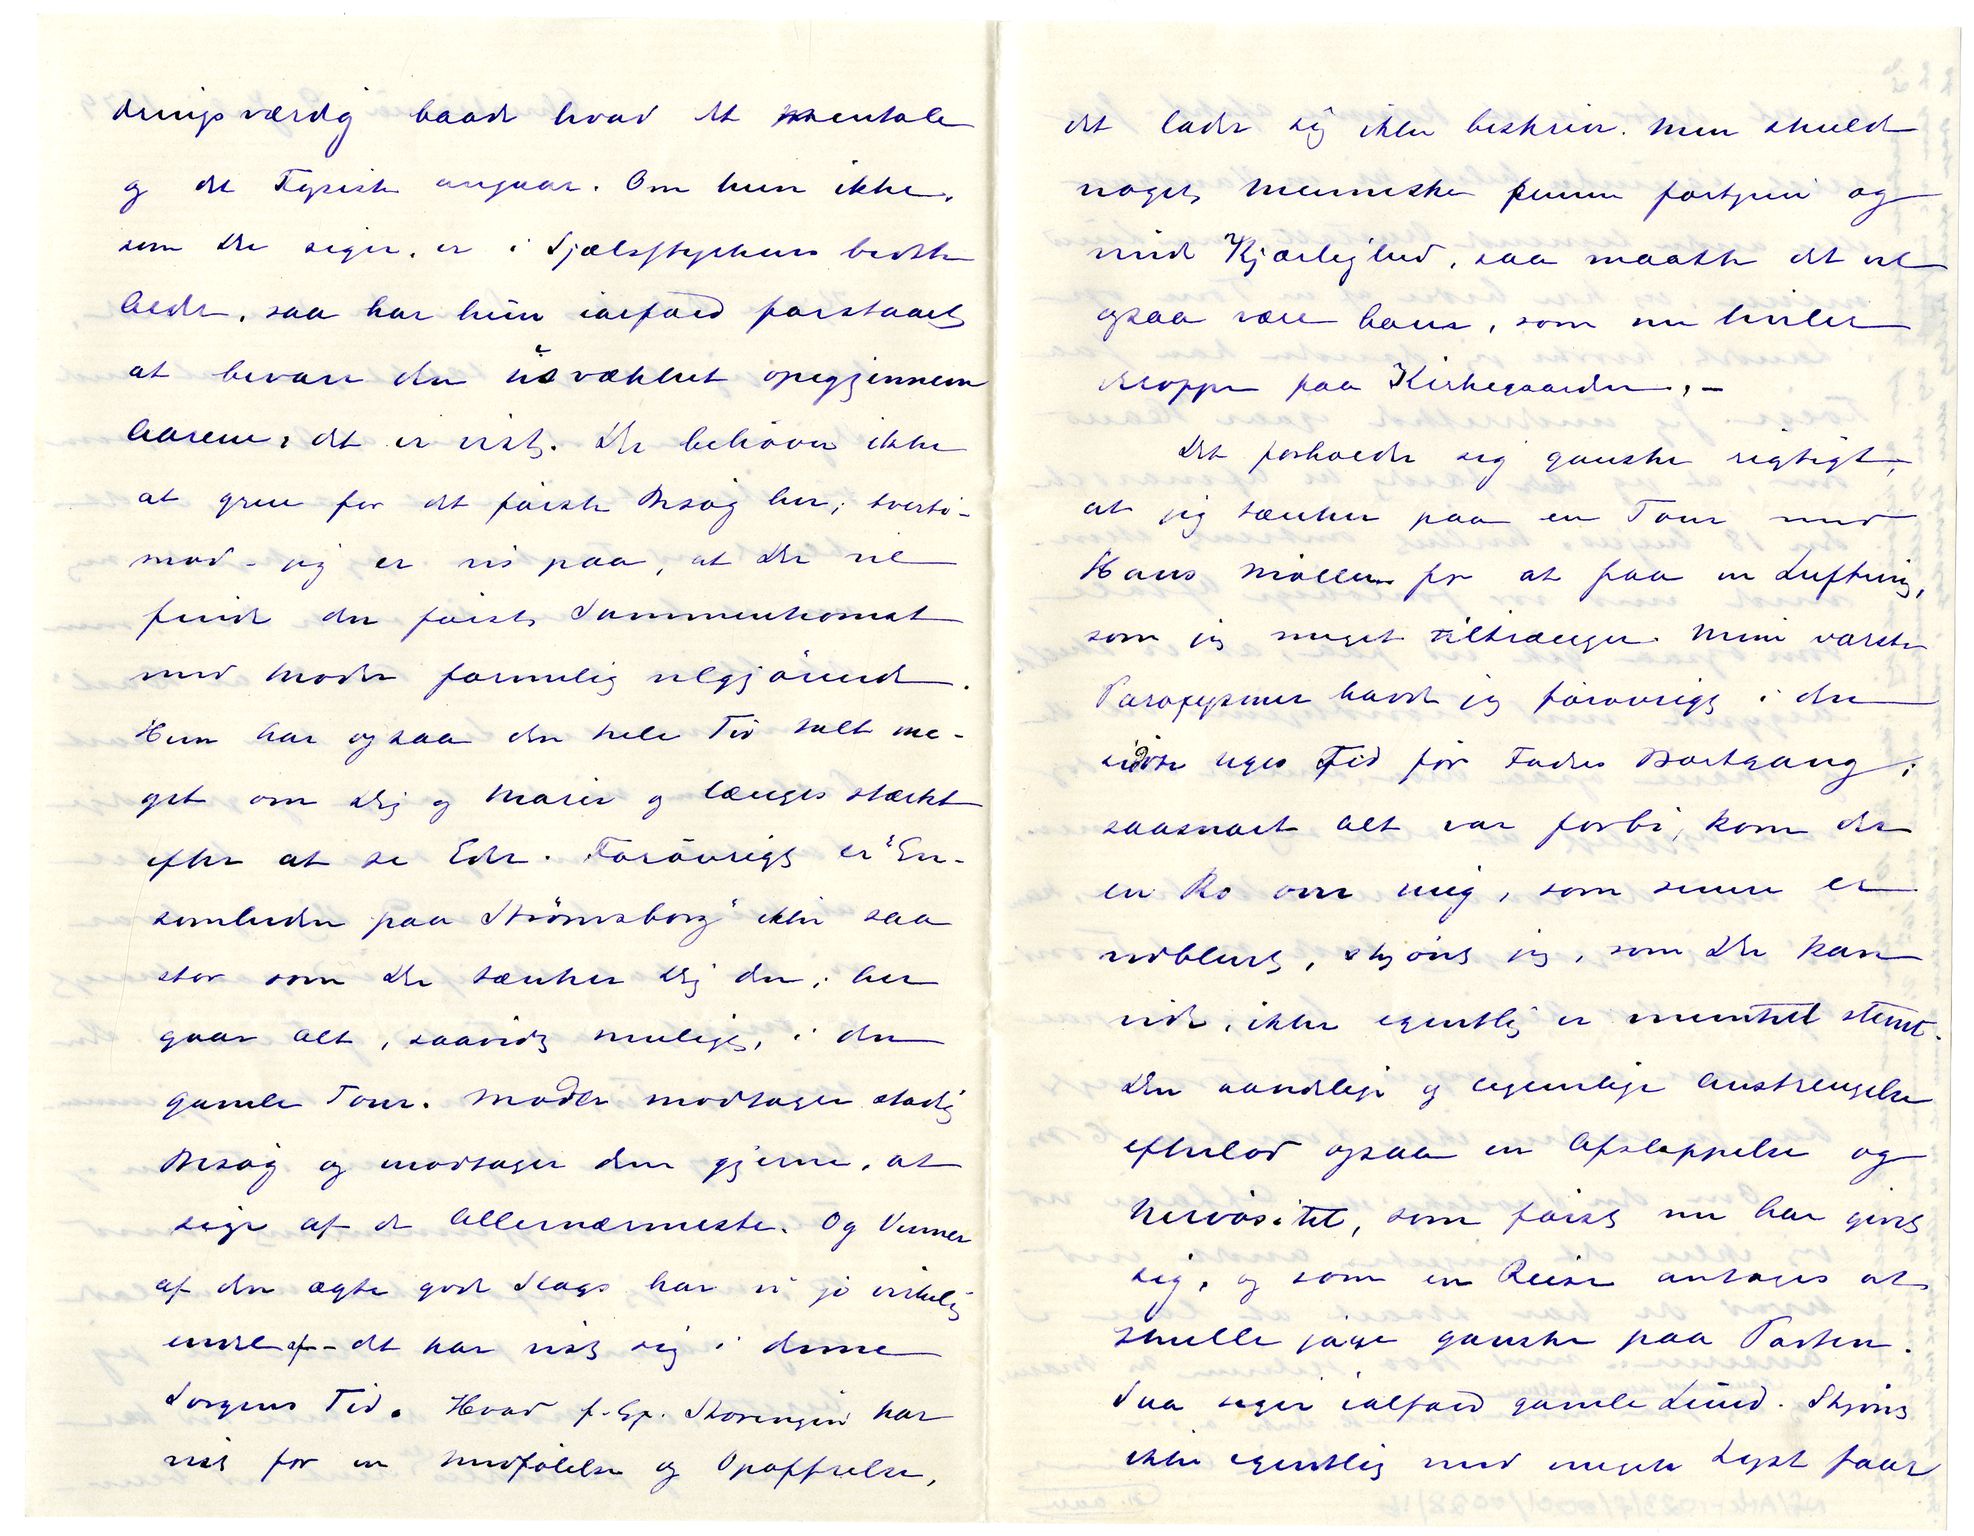 dringsværdig baade hvad det mentale
og det Fysiske angaar. Om hun ikke,
som Du siger, er i Sjælsstyrkens bedste
Alder, saa har hun ialfald forstaaet
at bevare den usvækket op igjennem
Aarene, det er vist. Du behøver ikke
at grue for det første Besøg her; tverti-
mod – jeg er vis paa, at Du vil
finde den første Sammenkomst
med Moder formelig velgjørende.
Hun har ogsaa den hele Tid talt me-
get om Dig og Marie og længes stærkt
efter at se Eder. Forøvrigt er "En-
somheden paa Strømsborg" ikke saa
stor som Du tænker Dig den; her
gaar Alt, saavidt muligt, i den
gamle Tour. Moder modtager stadig
Besøg og modtager dem gjerne, at
sige af de Allernærmeste. Og Venner
af den ægte gode Slags har vi jo virkelig
– det har vist sig i denne
Sorgens Tid. Hvad f. Ex. Thoresen har
vist for en Medfølelse og Opoffrelse,
det lader sig ikke beskrive. Men skulde
noget Menneske kunne fortjene og
vinde Kjærlighed, saa maatte det vel
ogsaa være hans, som nu hviler
deroppe paa Kirkegaarden. –
Det forholder sig ganske rigtigt,
at jeg tænker paa en Tour med
Hans Møller for at faa en Luftning,
som jeg meget tiltrænger. Mine værste
Paroxysmer havde jeg forøvrigt i den
sidste Uges Tid før Faders Bortgang;
saasnart Alt var forbi, kom der
en Ro over mig, som senere er
vedblevet, skjønt jeg, som Du kan
vide, ikke egentlig er muntert stemt.
Den aandelige og legemlige Anstrengelse
efterlod ogsaa en Afslappelse og
Nervøsitet, som først nu har givet
sig, og som en Reise antages at
skulle jage ganske paa Porten.
Saa siger ialfald gamle Lund. Skjønt
ikke egentlig med megen Lyst faar